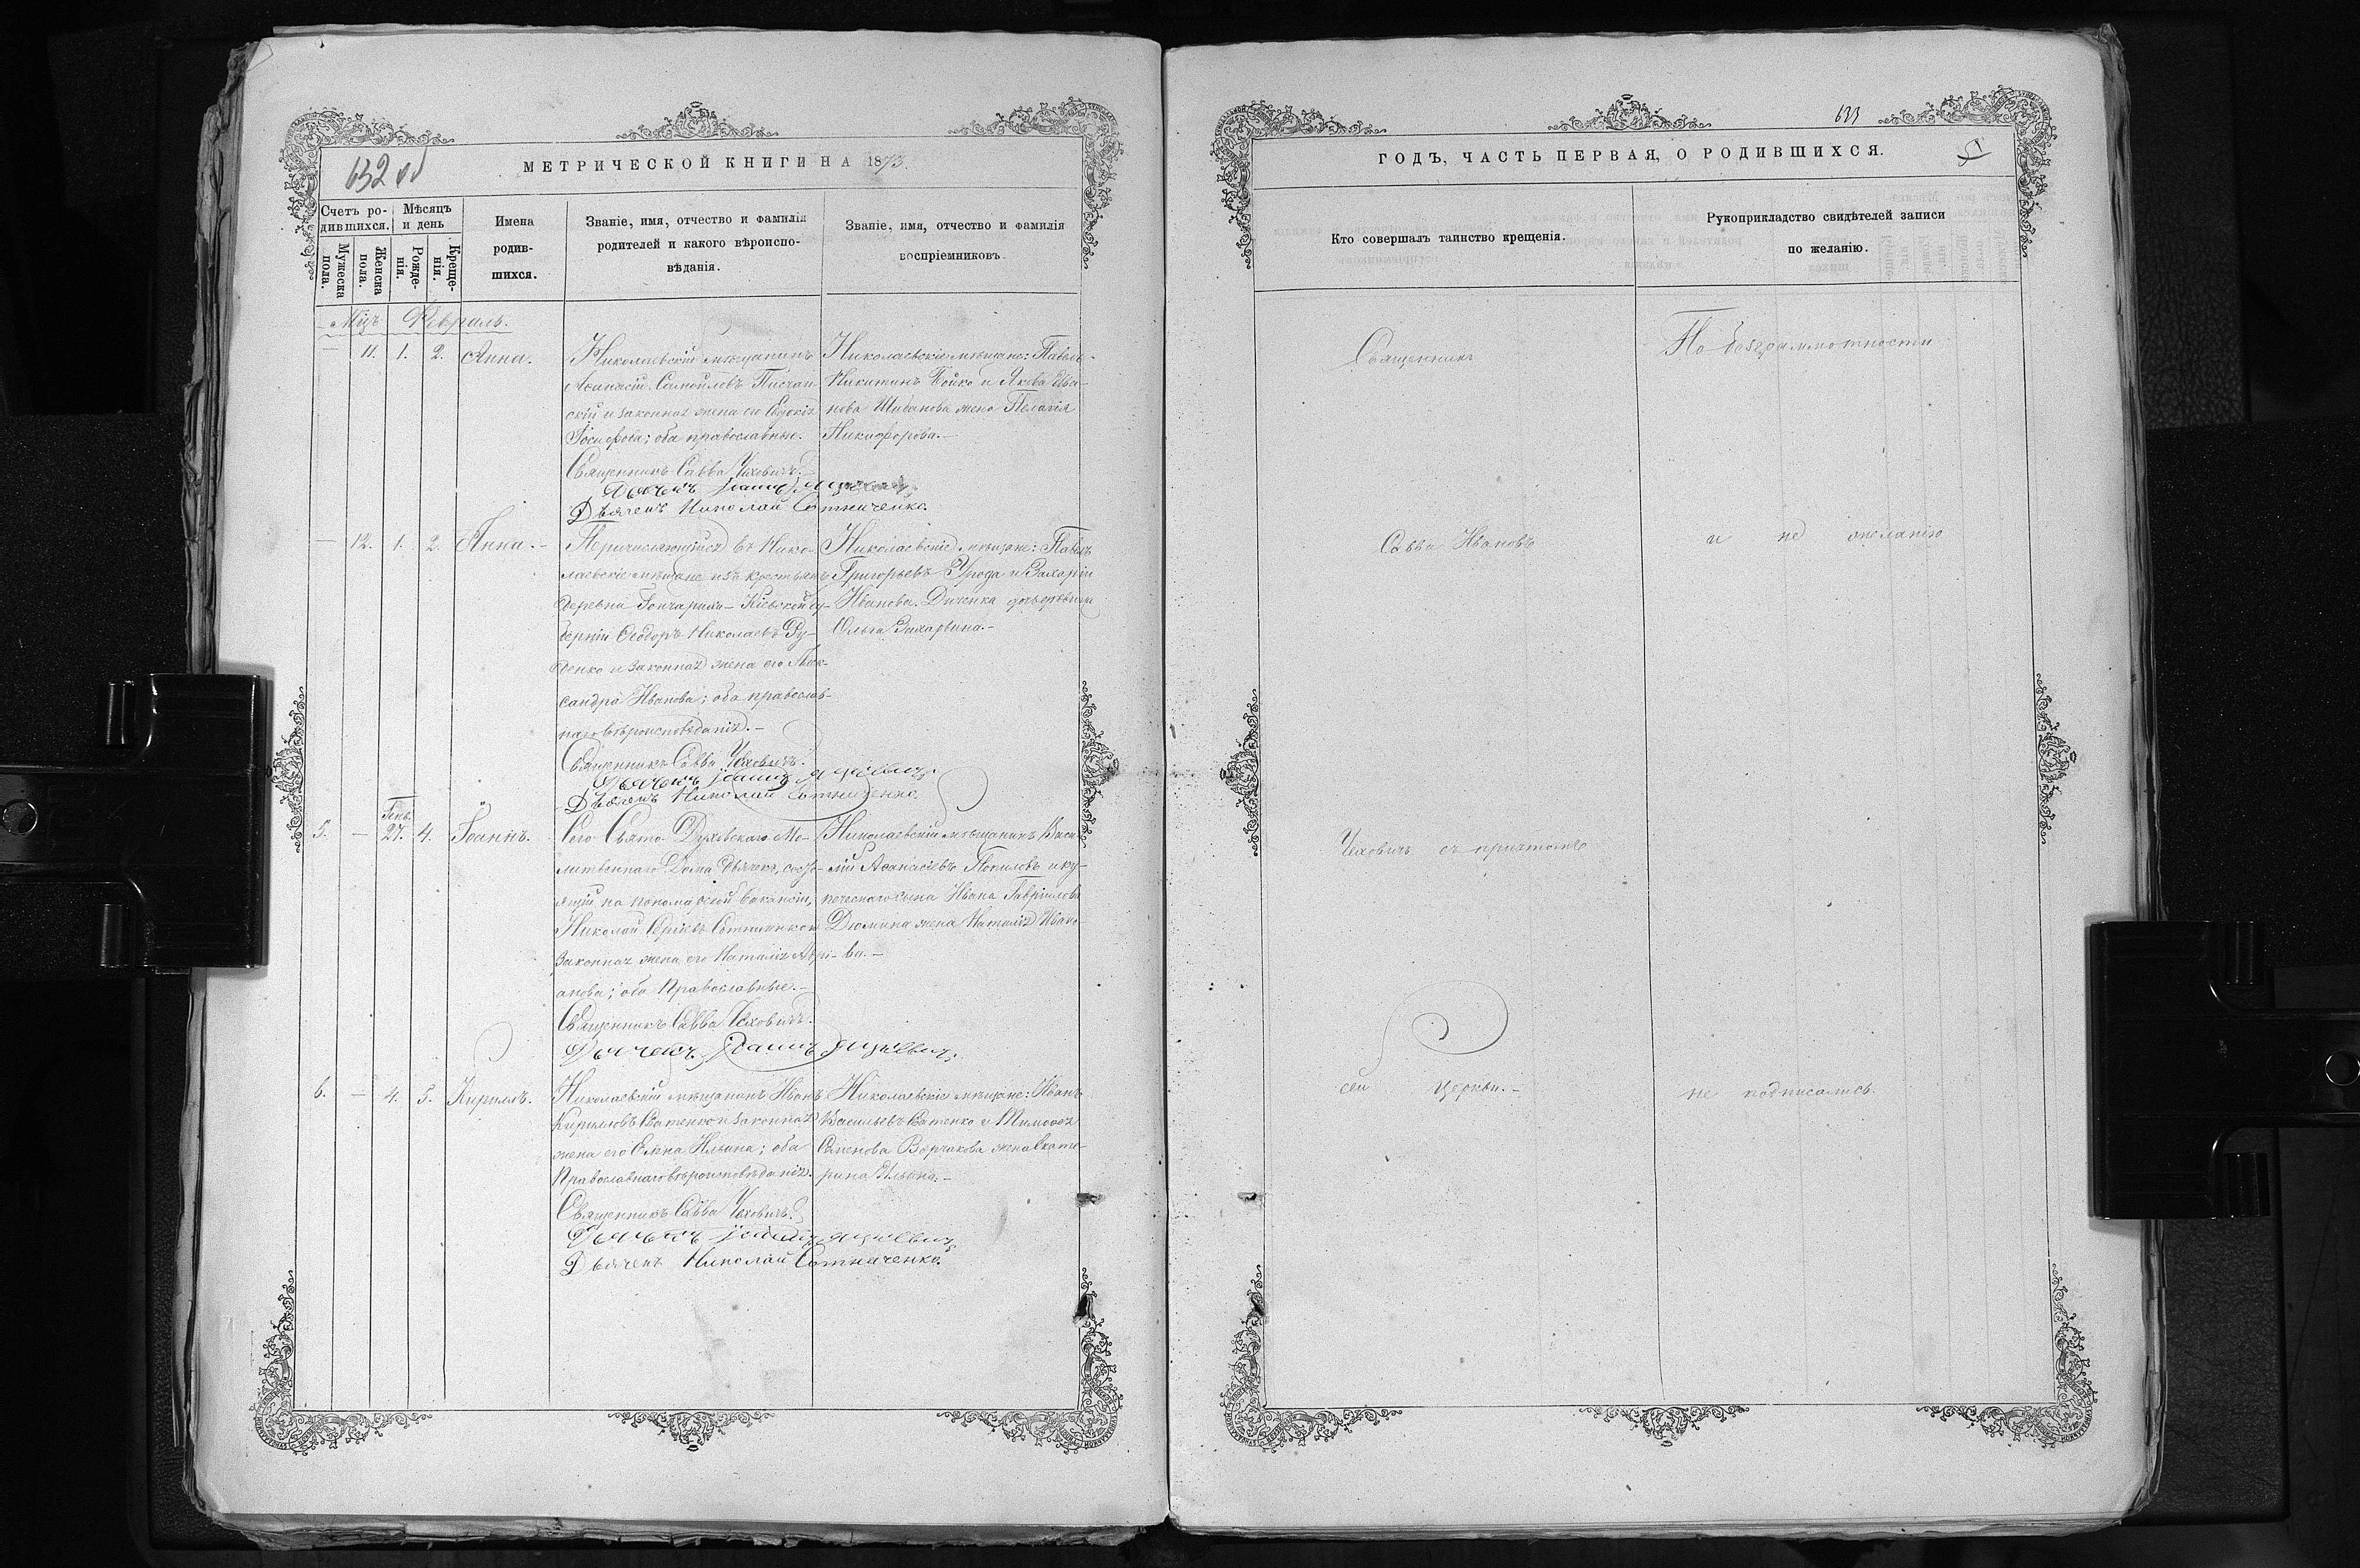 632 об
МЕТРИЧЕСКОЙ КНИГИ НА 1873.
Счетъ ро-
дившихся.
Мѣсяцъ
и день
Мужеска
пола.
Женска
пола.
Рожде-
нія.
Креще-
нія.
Имена
родив-
шихся.
Званіе, имя, отчество и фамилія
родителей и какого вѣроиспо-
вѣданія.
Званіе, имя, отчество и фамилія
воспріемниковъ.
Мцъ Февраль.
— 11. 1. 2. Анна.
Николаевскій мѣщанинъ
Аѳанасій Самойловъ Писчан-
скій и законная жена его Евдокія
Іосифова; оба православные.
Священникъ Савва Чеховичъ.
Дьячекъ Іоаннъ
Дьячекъ Николай Сотниченко.
Николаевскіе мѣщане: Павелъ
Никитинъ Бойко и Якова Ива-
нова Шибанова жена Пелагія
Никифорова.—
— 12. 1. 2. Анна.—
Перечисляющійся въ Нико-
лаевскіе мѣщане изъ крестьянъ
деревни Гончарихи Кіевской гу-
берніи Ѳеодоръ Николаевъ Ру-
денко и законная жена его Алек-
сандра Иванова; оба православ-
наго вѣроисповѣданія.—
Священникъ Савва Чеховичъ.
Дьячекъ Іоаннъ
Дьячекъ Николай Сотниченко.
Николаевскіе мѣщане: Павелъ
Григорьевъ и Захарія
Иванова Диченка дочь дѣвица
Ольга Захарьина.—
5. — Генв. 27. 4. Іоаннъ.
Сего Свято-Духовскаго Мо-
литвеннаго Дома дьячекъ, состо-
ящій на пономарской вакансіи,
Николай Сергіевъ Сотниченко и
законная жена его Наталія Адрі-
анова; оба Православные.—
Священникъ Савва Чеховичъ.
Дьячекъ Іоаннъ
Николаевскій мѣщанинъ Васи-
лій Аѳанасіевъ Поповъ и ку-
печескаго сына Ивана Гавріилова
Дюмина жена Наталія Ивано-
ва.—
6. — 4. 5. Кириллъ.
Николаевскій мѣщанинъ Иванъ
Кирилловъ Ватенко и законная
жена его Елена Ильина; оба
Православнаго вѣроисповѣданія.
Священникъ Савва Чеховичъ.
Дьячекъ Іоаннъ
Дьячекъ Николай Сотниченко.
Николаевскіе мѣщане: Иванъ
Васильевъ Ватенко и Тимоѳея
Семенова Ворчакова жена Екате-
рина Ильина.—
633
ГОДЪ, ЧАСТЬ ПЕРВАЯ, О РОДИВШИХСЯ.
5
Кто совершалъ таинство крещенія.
Рукоприкладство свидѣтелей записи
по желанію.
Священникъ
Савва Ивановъ
Чеховичъ съ причтомъ
сей церкви.—
По безграммотности
и не желанію
не подписались.